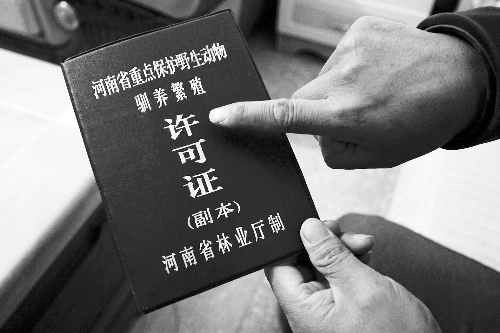 河南省重点保护野生动物
驯养繁殖
许
可
证
(副本)
河南省林业厅制